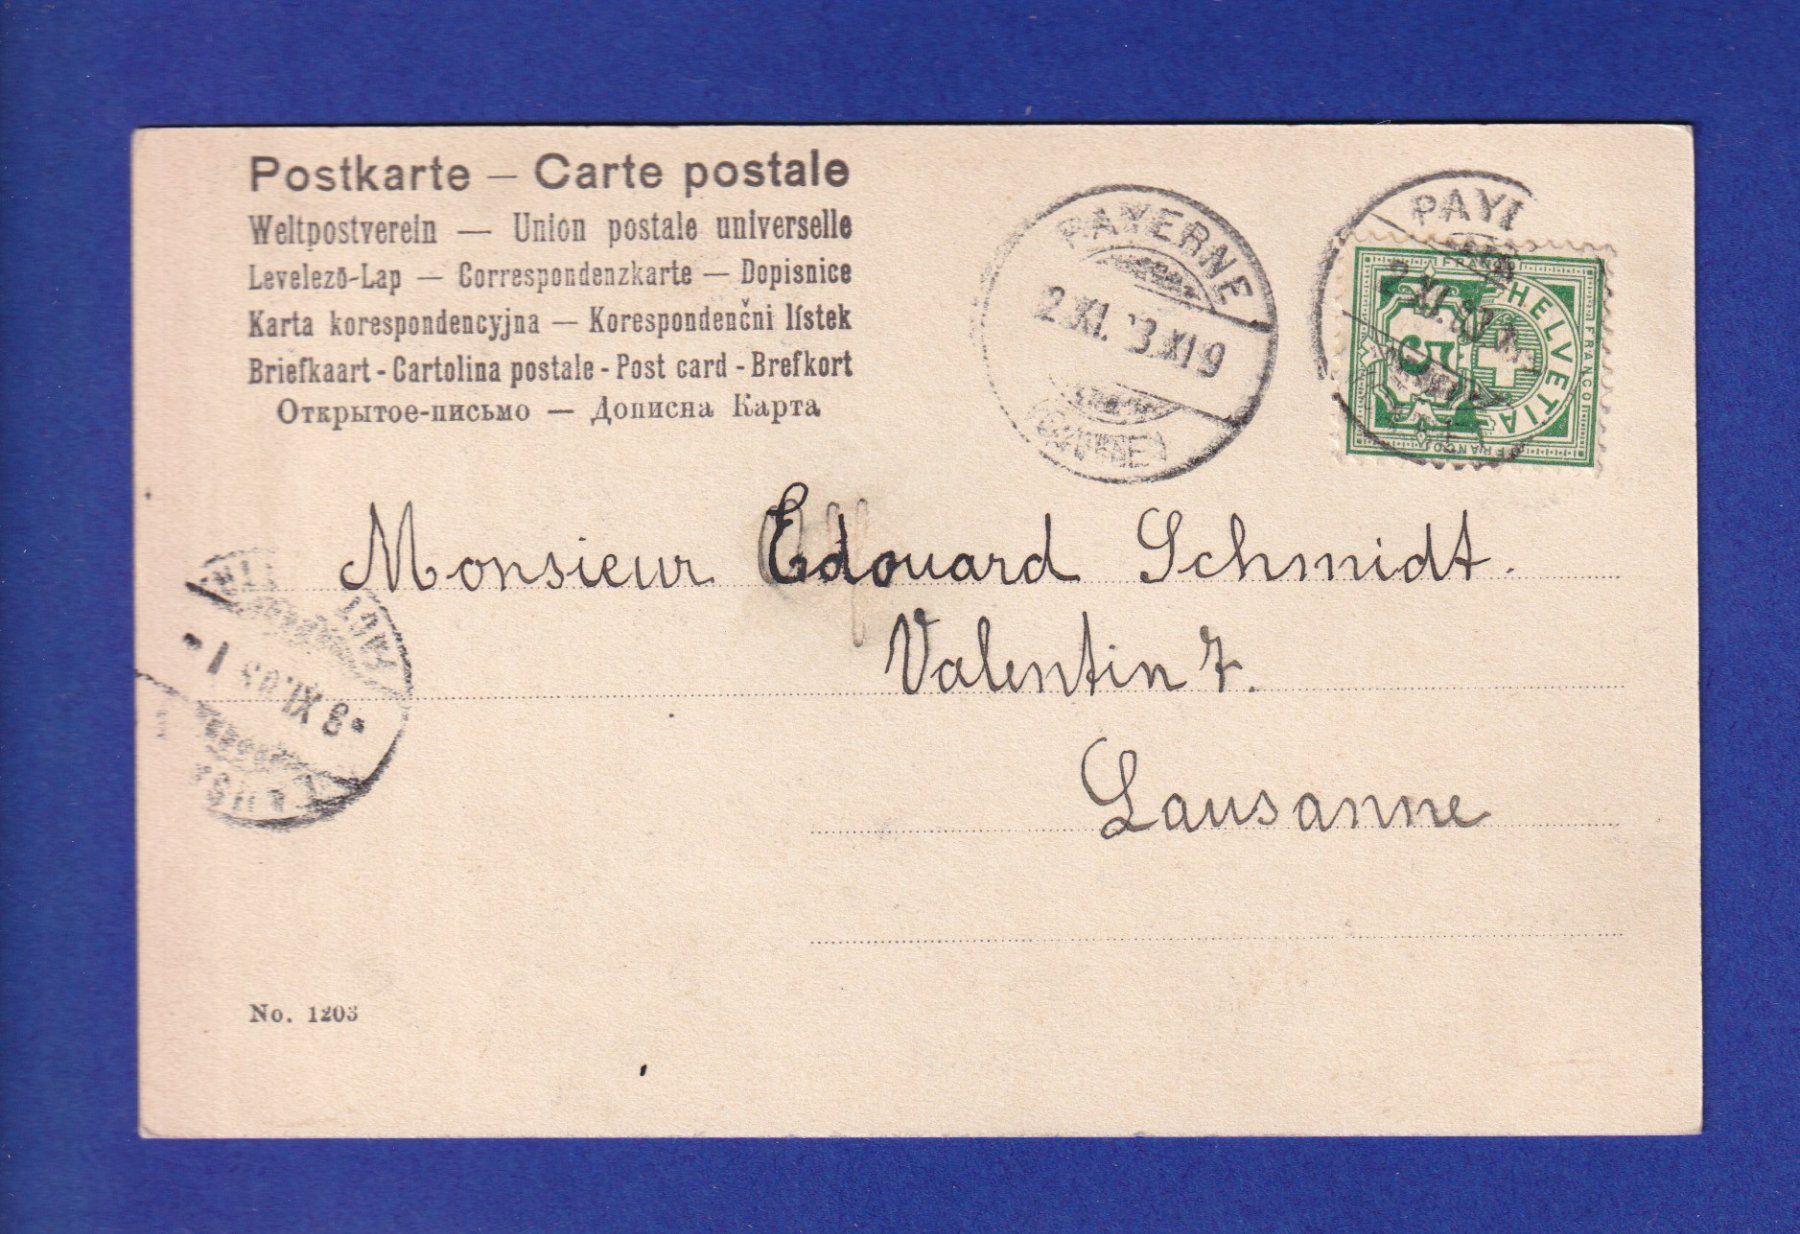 Postkarte – Carte postale
Weltpostverein — Union postale universelle
Levelező-Lap — Correspondenzkarte — Dopisnice
Karta korespondencyjna — Korespondenčni lístek
Briefkaart - Cartolina postale - Post card - Brefkort
Открытое-письмо — Дописна Карта
PAYERNE
2.XI. 3.XI 9
PAY
2.XI.
HELVETIA
FRANCO
FRANCO
FRANCO
5
Monsieur Edouard Schmidt.
Valentin 7.
Lausanne
3 XI.03
No. 1203